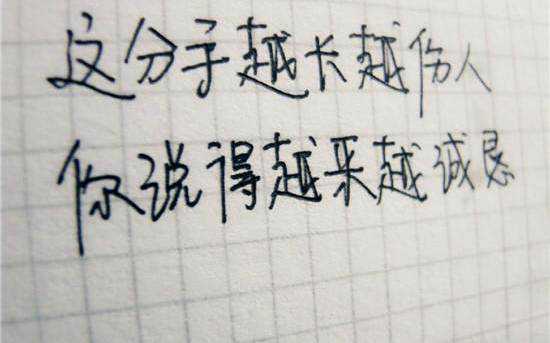 这分子越长越伤人
你说得越来越诚恳